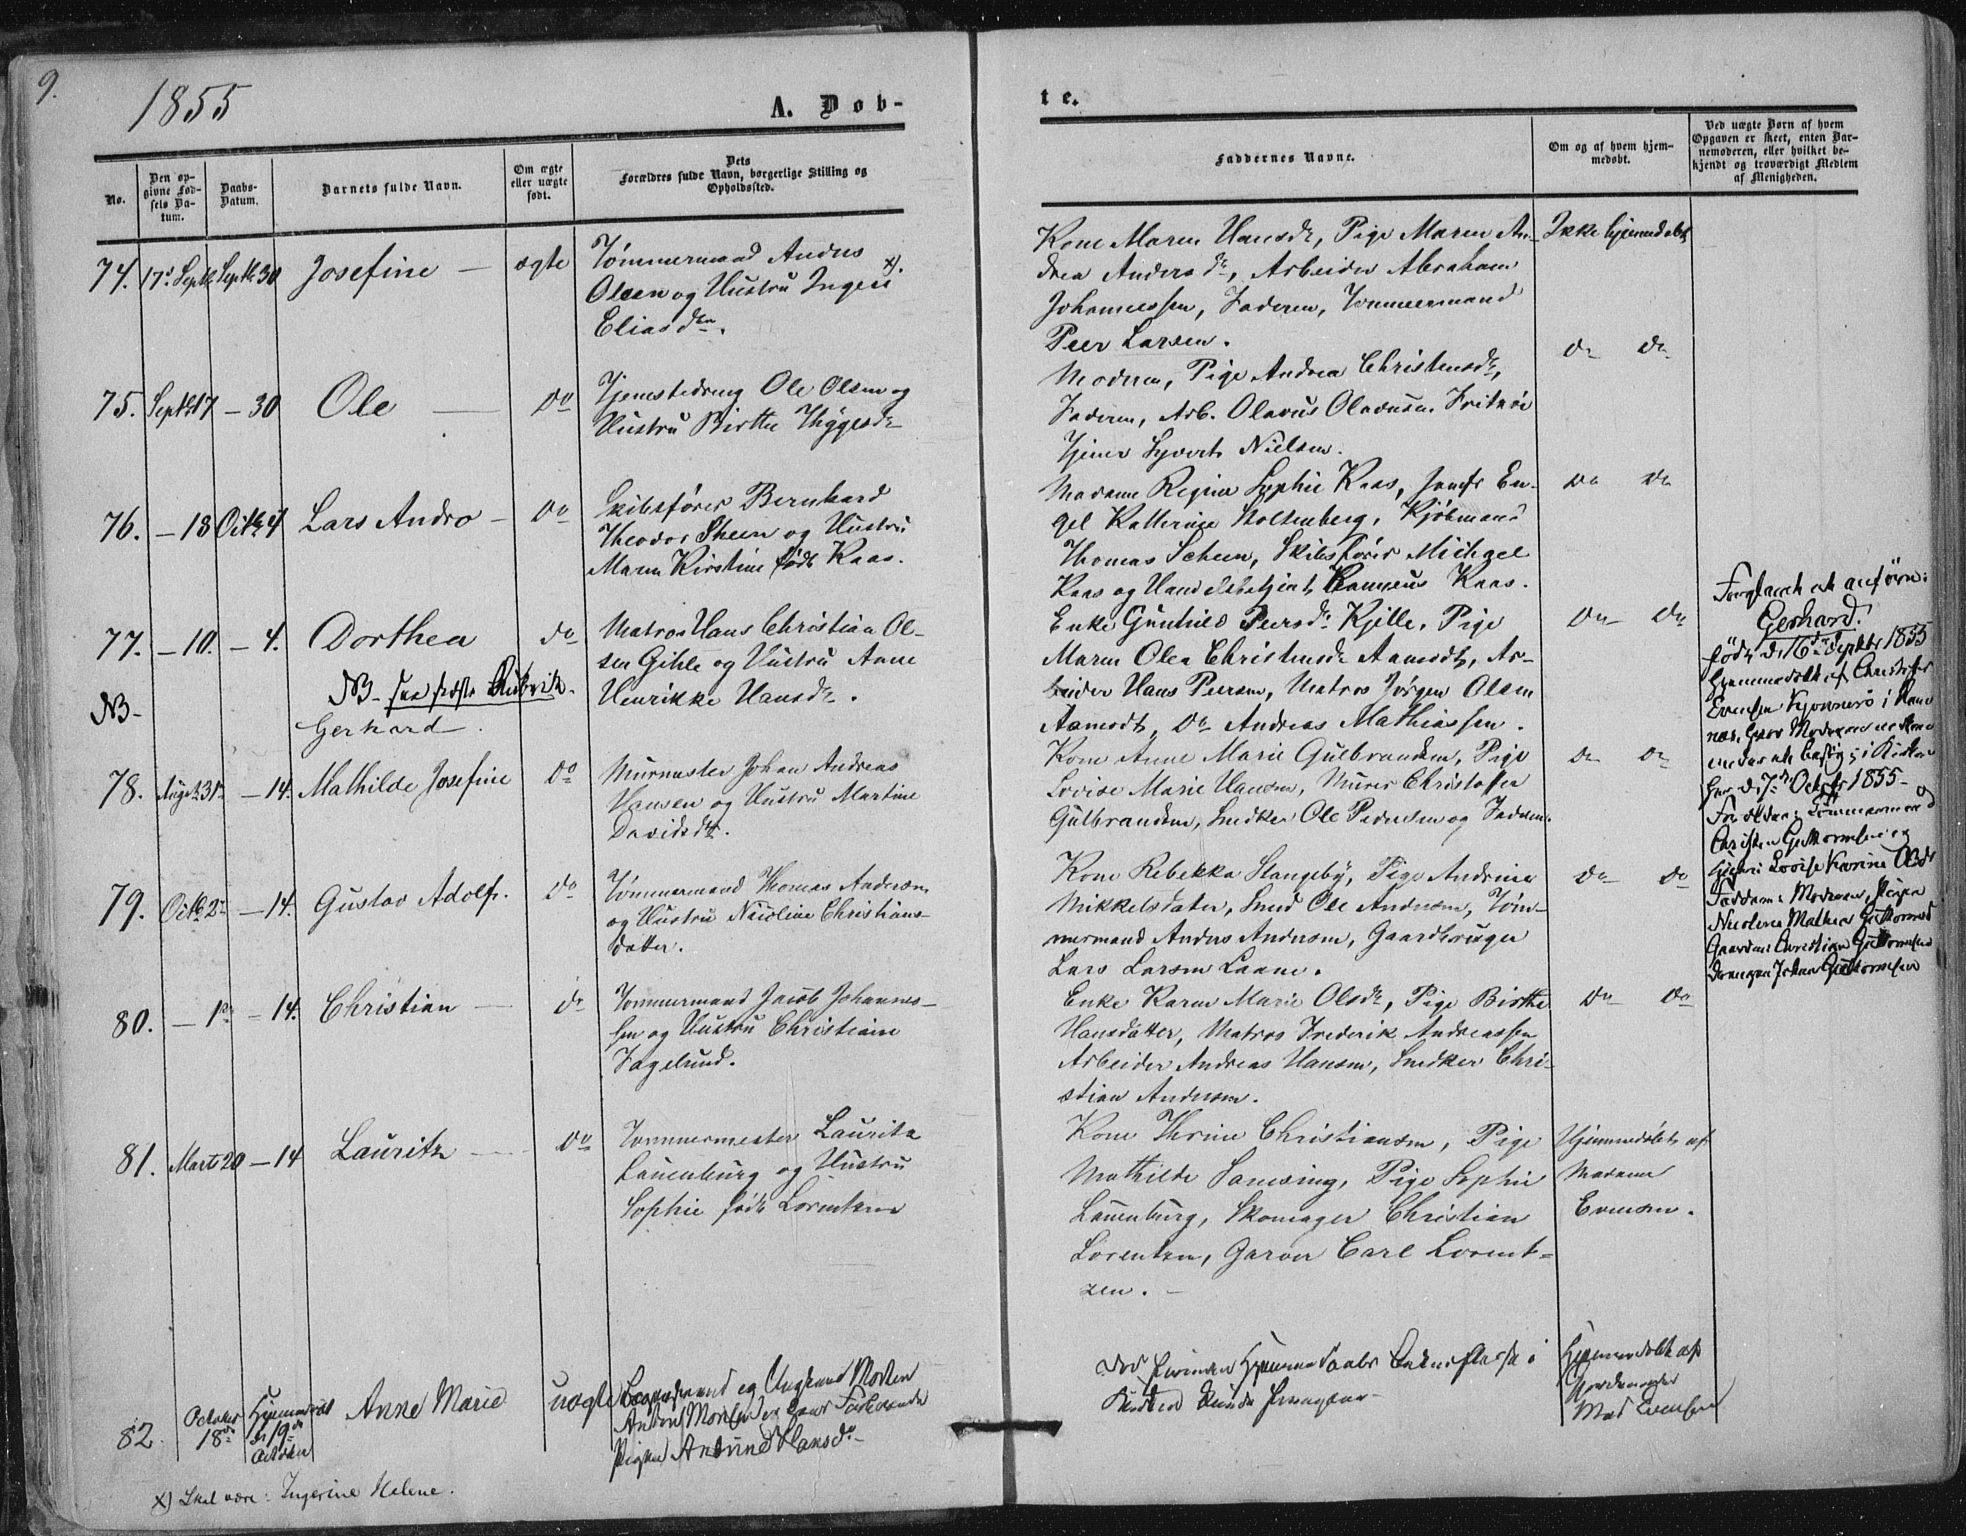 9.
1855
A. Døb-
te.
No.
Den opgivne Fødsels Datum.
Daabs-Datum.
Barnets fulde Navn.
Om ægte eller uægte født.
Dets Forældres fulde Navn, borgerlige Stilling og Opholdssted.
Faddernes Navne.
Om og af hvem hjemmedøbt.
Ved uægte Børn af hvem Opgaven er skeet, enten Barnemoderen, eller hvilket bekjendt og troværdigt Medlem af Menigheden.
74. 17de Septbr Septbr 30 Josefine — ægte
Tømmermand Anders
Olsen og Hustru Ingeri x).
Eliasdtr.
Kone Maren Hansdr, Pige Maren An-
drea Andersdr, Arbeider Abraham
Johannessen, Faderen, Tømmermand
Peer Larsen.
Ikke hjemmedøbt
75. Septbr 17 — 30 Ole — do
Tjenestedreng Ole Olsen og
Hustru Birthe Thygesdr
Moderen, Pige Andrea Christensdr,
Faderen, Arb. Olavus Olavusen Fritzøe
Tjener Syvert Nielsen.
do do
76. — 13 Octbr 4 Lars Andro — do
Skibsfører Bernhard
Theodor Sheen og Hustru
Maren Kirstine født Kaas.
Madame Regine Sophie Kaas, Jomfr En-
gel Kathrine Stoltenberg, Kjøbmand
Thomas Scheen, Skibsfører Michael
Kaas og Handelsbetjent Kaas.
do do
77. — 10. — 4. Dorthea do
Matros Hans Christian Ol-
sen Gihle og Hustru Anne
Henrikke Hansdr.
Enke Gunhild Peersdr Kjelle, Pige
Maren Olea Christensdr Aamodt, Ar-
beider Hans Peersen, Matros Jørgen Olsen
Aamodt, Do Andreas Mathiassen.
do do
NB-
NB- see sidste Rubrik.
Gerhard —
78. Augst 31te — 14. Mathilde Josefine do
Murmester Johan Andreas
Hansen og Hustru Martine
Davidsdtr.
Kone Anne Marie Gulbrandsen, Pige
Lovise Marie Hansen, Murer Christoffer
Gulbrandsen, Snedker Ole Pedersen og Faderen.
do do
79. Octbr 2de — 14. Gustav Adolf. do
Tømmermand Thomas Andersen
og Hustru Nicoline Christians-
datter.
Kone Rebekka Slangeby, Pige Andrine
Mikkelsdatter, Smed Ole Andersen, Tøm-
mermand Anders Andersen, Gaardbruger
Lars Larsen Laane.
do do
80. — 1ste — 14. Christian — do
Tømmermand Jacob Johannes-
sen og Hustru Christiane
Fagelund.
Enke Karen Marie Olsdr, Pige Birthe
Hansdatter, Matros Frederik Andreassen
Arbeider Andreas Hansen, Snedker Chri-
stian Andersen.
do do
81. Marts 20 — 14 Lauritz — do
Tømmermester Lauritz
Lauenburg og Hustru
Sophie født Lorentzen
Kone Thrine Christiansen, Pige
Mathilde Sanesing, Pige Sophie
Lauenburg, Skomager Christian
Lorentzen, Garver Carl Lorent-
zen. —
Hjemmedøbt af
Madame
Evensen.
82. October 18de Hjemmedøbt d 19de October Anne Marie uægte
og Ungkarl Morten
Pigen Andrine Hansdr
Hjemmedøbt af
Mad Evensen
Forglemt at anføre:
Gerhard.
født d 16de Septbr 1855
hjemmedøbt af Christoffer
Evensen
den 7de Octobr 1855 —
Forældre: Tømmermand
Christen Guttormsen og
Hustru Lovise Karine Olsdr
Faddere: Moderen, Pigen
Nicoline Mathea Guttormsd
Gaardmd Christian Guttormsen
Drengen Johan Guttormsen
x) Skal være: Ingerine Helene.